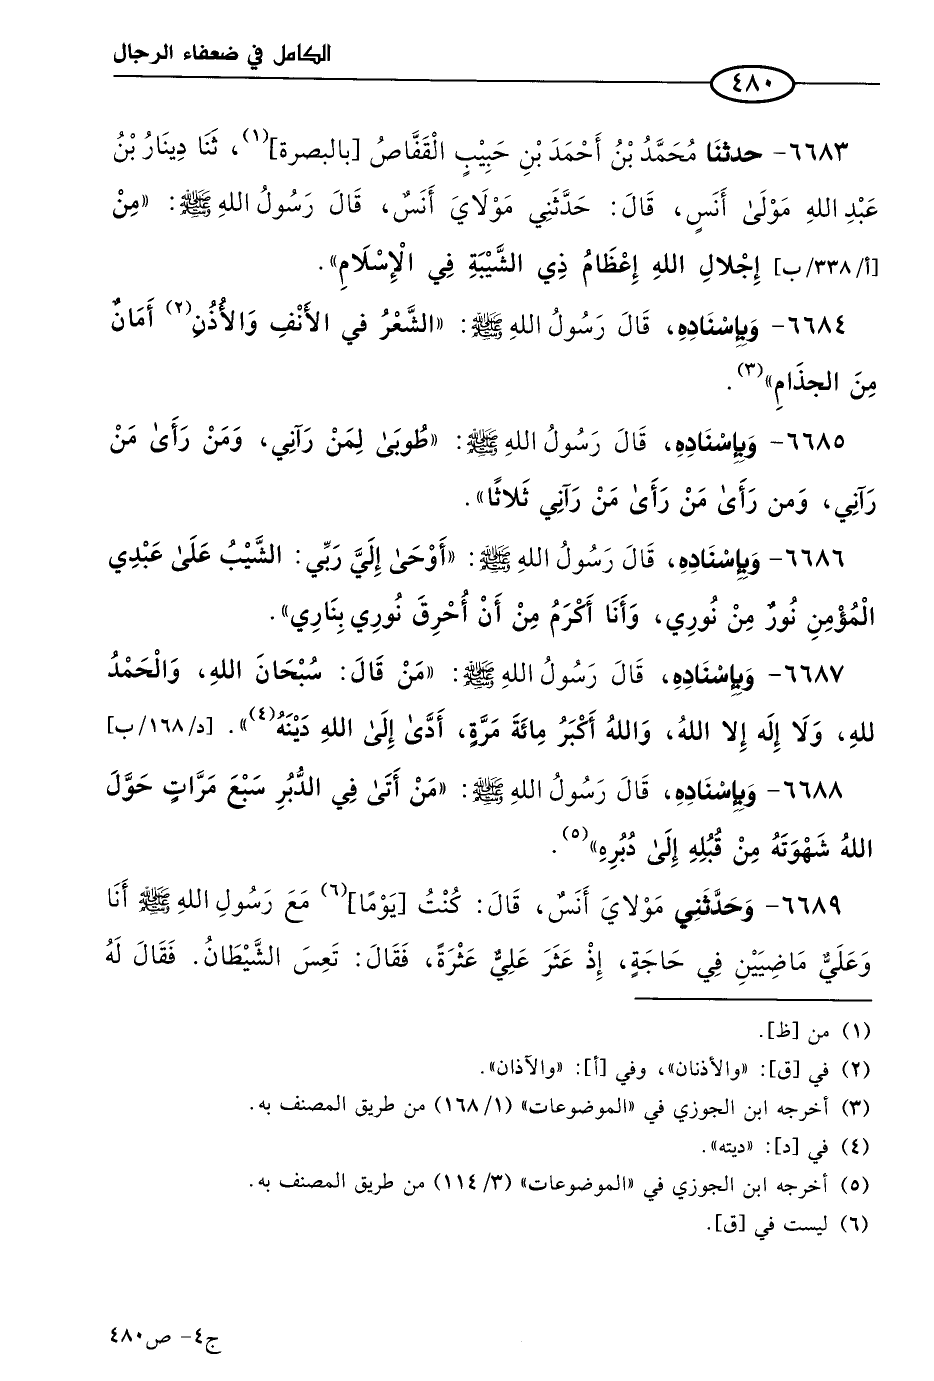 الكامل في ضعفاء الرجال
٤٨٠
٦٦٨٣- حدثنَا مُحَمَّدُ بْنُ أَحْمَدَ بْنِ حَبِيْبٍ الْقَفَّاصُ [بالبصرة](١)، ثَنَا دِينَارُ بْنُ
عَبْدِ اللهِ مَوْلَىٰ أَنَسٍ، قَالَ: حَدَّثَنِي مَوْلَايَ أَنَسٌ، قَالَ رَسُولُ اللهِ ﷺ: «مِنْ
[أ/٣٣٨/ب] إِجْلالِ اللهِ إِعْظَامُ ذِي الشَّيْبَةِ فِي الْإِسْلَامِ».
٦٦٨٤- وَبِإِسْنَادِهِ، قَالَ رَسُولُ اللهِ ﷺ: «الشَّعْرُ في الأَنْفِ وَالأُذُنِ(٢) أَمَانٌ
مِنَ الجذَامِ»(٣).
٦٦٨٥- وَبِإِسْنَادِهِ، قَالَ رَسُولُ اللهِ ﷺ: «طُوبَىٰ لِمَنْ رَآنِي، وَمَنْ رَأَىٰ مَنْ
رَآنِي، وَمن رَأَىٰ مَنْ رَأَىٰ مَنْ رَآنِي ثَلاثًا».
٦٦٨٦- وَبِإِسْنَادِهِ، قَالَ رَسُولُ اللهِ ﷺ: «أَوْحَىٰ إِلَيَّ رَبِّي: الشَّيْبُ عَلَىٰ عَبْدِي
الْمُؤْمِنِ نُورٌ مِنْ نُورِي، وَأَنَا أَكْرَمُ مِنْ أَنْ أُحْرِقَ نُورِي بِنَارِي».
٦٦٨٧- وَبِإِسْنَادِهِ، قَالَ رَسُولُ اللهِ ﷺ: «مَنْ قَالَ: سُبْحَانَ اللهِ، وَالْحَمْدُ
للهِ، وَلَا إِلَه إِلا اللهُ، وَاللهُ أَكْبَرُ مِائَةَ مَرَّةٍ، أَدَّىٰ إِلَىٰ اللهِ دَيْنَهُ(٤)». [د/١٦٨/ب]
٦٦٨٨- وَبِإِسْنَادِهِ، قَالَ رَسُولُ اللهِ ﷺ: «مَنْ أَتَىٰ فِي الدُّبُرِ سَبْعَ مَرَّاتٍ حَوَّلَ
اللهُ شَهْوَتَهُ مِنْ قُبُلِهِ إِلَىٰ دُبُرِهِ»(٥).
٦٦٨٩- وَحَدَّثَنِي مَوْلايَ أَنَسٌ، قَالَ: كُنْتُ [يَوْمًا](٦) مَعَ رَسُولِ اللهِ ﷺ أَنَا
وَعَلَيٌّ مَاضِيَيْنِ فِي حَاجَةٍ، إِذْ عَثَرَ عَلِيٌّ عَثْرَةً، فَقَالَ: تَعِسَ الشَّيْطَانُ. فَقَالَ لَهُ
(١) من [ظ].
(٢) في [ق]: «والأذنان»، وفي [أ]: «والآذان».
(٣) أخرجه ابن الجوزي في «الموضوعات» (١/١٦٨) من طريق المصنف به.
(٤) في [د]: «ديته».
(٥) أخرجه ابن الجوزي في «الموضوعات» (٣/١١٤) من طريق المصنف به.
(٦) ليست في [ق].
ج٤- ص٤٨٠